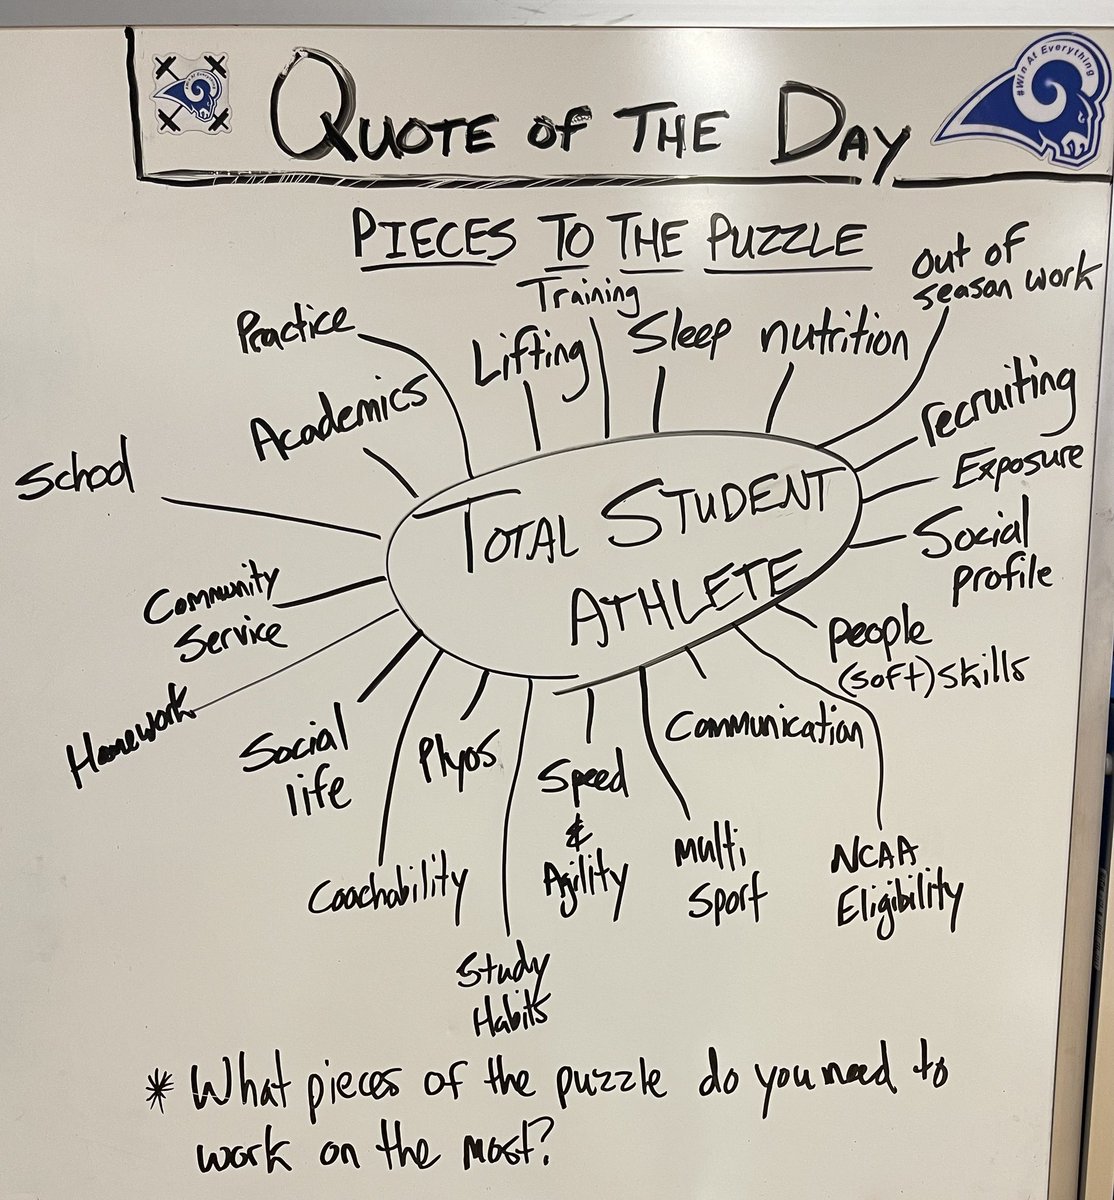 QUOTE OF THE DAY
#Win At Everything
PIECES TO THE PUZZLE
Practice
Academics
School
Lifting
Training
Sleep
nutrition
out of
season work
recruiting
Exposure
Social
profile
people
(soft) skills
TOTAL STUDENT
ATHLETE
Community
Service
Homework
Social
life
Coachability
Plyos
Study
Habits
Speed
&
Agility
Multi
Sport
Communication
NCAA
Eligibility
* What pieces of the puzzle do you need to
work on the most?